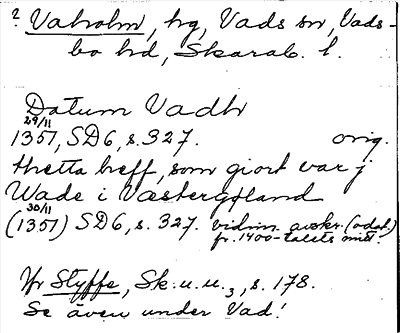 ? Vaholm, hg, Vads sn, Vads-
bo hd, Skarab. l.
Datum Vadh
29/11
1351, SD6, s. 327. orig.
thetta breff, som giort var j
Wade i Væstergøtland
30/11
(1351) SD6, s. 327. vidim. avskr. (odat.)
fr. 1400-talets mitt
Jfr Styffe, Sk. u. u.3, s. 178.
Se även under Vad!